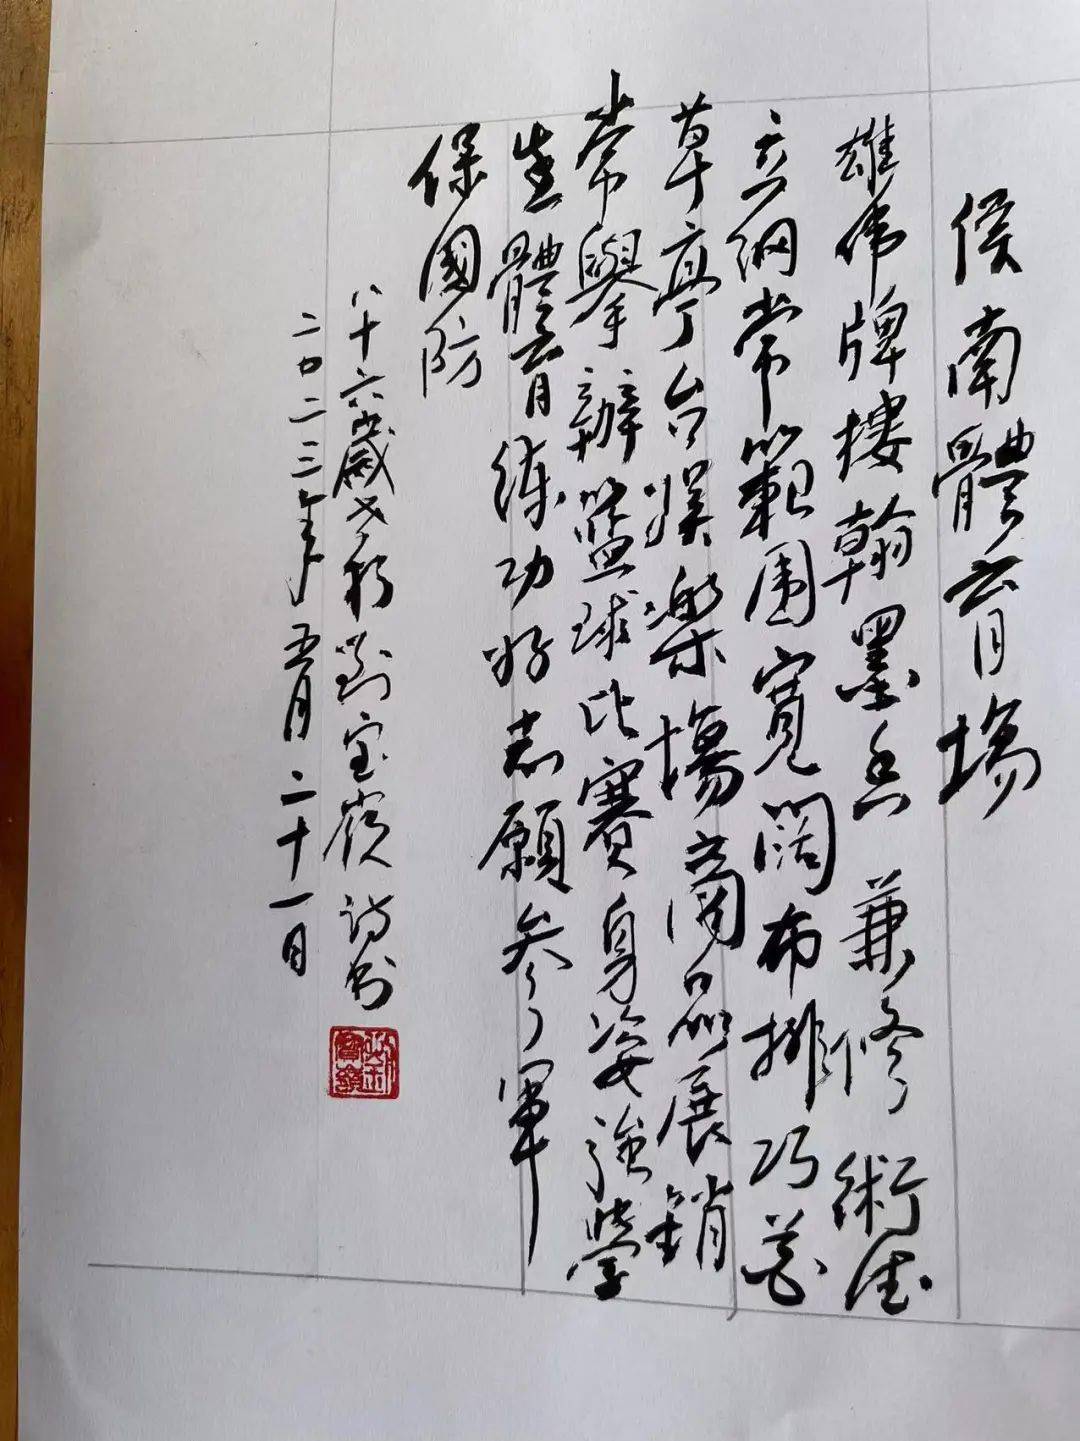 侯南體育場
雄偉牌樓翰墨香兼修術德
立綱常範圍寬闊布排巧花
草亭台娛樂場商品展銷
常舉辦籃球比賽身姿強學
生體育練功好志願參軍
保國防
八十六歲叟劉宝嶺詩书
二〇二三年五月二十一日